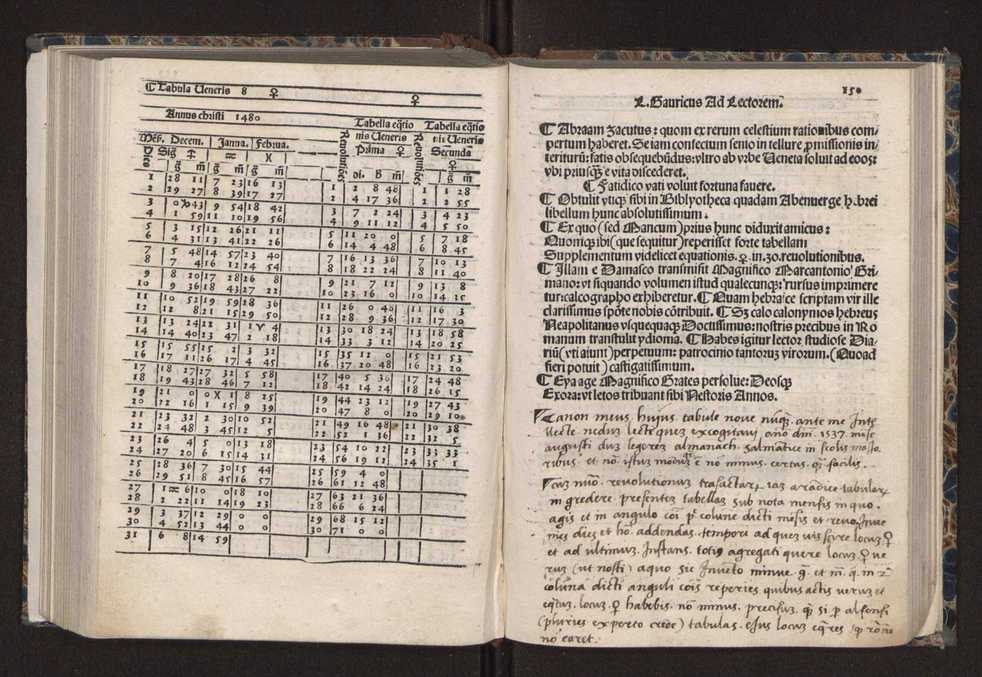 Tabula Veneris 8 ♀ ♀
Annus christi 1480
Tabella eq̄tio
nis Veneris
Prima ♀
Tabella eq̄tio
nis Veneris
Secunda
Mēs. Decem. Janua. Februa.
Dies Sig ♐ ♒ ♓
g̃ m̃ g̃ m̃ g̃ m̃
Reuolutiões ōi. B m̃
Reuolutiões g̃ m̃
1 28 11 7 23 16 13 1 2 8 48 1 1 28
2 29 27 8 39 17 27 2 4 17 36 2 2 55
3 0 ♑ 43 9 54 18 42 3 7 2 24 3 4 23
4 1 59 11 10 19 56 4 9 11 12 4 5 50
5 3 15 12 26 21 11 5 11 20 0 5 7 18
6 4 31 13 41 22 26 6 14 4 48 6 8 45
7 5 48 14 57 23 40 7 16 13 36 7 10 13
8 7 4 16 12 24 54 8 18 22 24 8 11 40
9 8 20 17 28 26 8 9 21 7 12 9 13 8
10 9 36 18 43 27 22 10 23 16 0 10 14 35
11 10 52 19 59 28 36 11 26 0 48 11 16 3
12 12 8 21 15 29 50 12 28 9 36 12 17 30
13 13 24 22 31 1 ♈ 4 13 30 18 24 13 18 58
14 14 40 23 47 2 18 14 33 3 12 14 20 25
15 15 55 25 2 3 32 15 35 12 0 15 21 53
16 17 11 26 17 4 45 16 37 20 48 16 23 20
17 18 27 27 32 5 58 17 40 5 36 17 24 48
18 19 43 28 46 7 12 18 42 14 24 18 26 15
19 21 0 0 ♓ 1 8 25 19 44 23 12 19 27 43
20 22 16 1 15 9 39 20 47 8 0 20 29 10
21 23 32 2 30 10 52 21 49 16 48 21 30 38
22 24 48 3 45 12 5 22 52 1 36 22 32 5
23 26 4 5 0 13 18 23 54 10 22 23 33 33
24 27 20 6 15 14 31 24 56 19 12 24 35 1
25 28 36 7 30 15 44 25 59 4 0
26 29 51 8 45 16 57 26 61 12 48
27 1 ♒ 6 10 0 18 10 27 63 21 36
28 2 22 11 14 19 23 28 66 6 24
29 3 37 12 29 0 0 29 68 15 12
30 4 52 13 44 0 0 30 71 0 0
31 6 8 14 59
150
L. Gauricus Ad Lectorem.
Abraam zacutus: quom ex rerum celestium rationibus com⸗
pertum haberet. Se iam confectum senio in tellure ꝓmissionis in⸗
teriturū: fatis obsequēbūdus: vltro ab vrbe Veneta soluit ad eoos:
vbi priusq̃ e vita discederet.
Fatidico vati voluit fortuna fauere.
Obtulit vtiqꝫ sibi in Biblyotheca quadam Abenuerge h̨. brei
libellum hunc absolutissimum.
Ex quo (sed Mancum) prius hunc viduxit amicus:
Quoniqꝫ ibi (que sequitur) reperisset forte tabellam
Supplementum videlicet equationis. ♀. in. 30. reuolutionibus.
Illam e Damasco transmisit Magnifico Marcantonio Gri⸗
mano: vt siquando volumen istud qualecunqꝫ: rursus imprimere
tur: calcographo exhiberetur. Quam hebraice scriptam vir ille
clarissimus spōte nobis cōtribuit. Sꝫ calo calonymos hebreus
Neapolitanus vsquequaqꝫ Doctissimus: nostris precibus in Ro
manum transtulit ydioma. Habes igitur lector studiose Dia⸗
riū (vti aiunt) perpetuum: patrocinio tantorum virorum. (Quoad
fieri potuit) castigatissimum.
Eya age Magnifico Grates persolue: Deosqꝫ
Exora: vt letos tribuant sibi Nestoris Annos.
Canon meus hujus tabule noue nūqꝫ. ante me Inte
llecte nedum lecte quem excogitavi año dm̄i. 1537. mēse
augusti dum legerem almanach. Salmātice in scolis mōsto
ribus. et nō. istum modum e nō minus. certus. qꝫ. facilis.
revolutionum trāsactarum a radice tabularum
ingredere. presentem tabellam sub nota mensis in quo.
agis et in angulo cōi colune dicti mēsis et revo
dies et ho. addendas. tempori ad quem vis scire locum ♀
et ad ultimum. Instans. totius agregati quere locum ♀ ve
rum (ut nosti) a quo sic Invēto minue. g̃. et m̃. q̃. in 2ª
coluna dicti anguli cōis reperies quibus actis verum et
equatum. locum. ♀ habebis. nō minus. precisum. q̃ si p̱ alfonsi
(pluries experto crede) tabulas. ejus locum
nō caret.